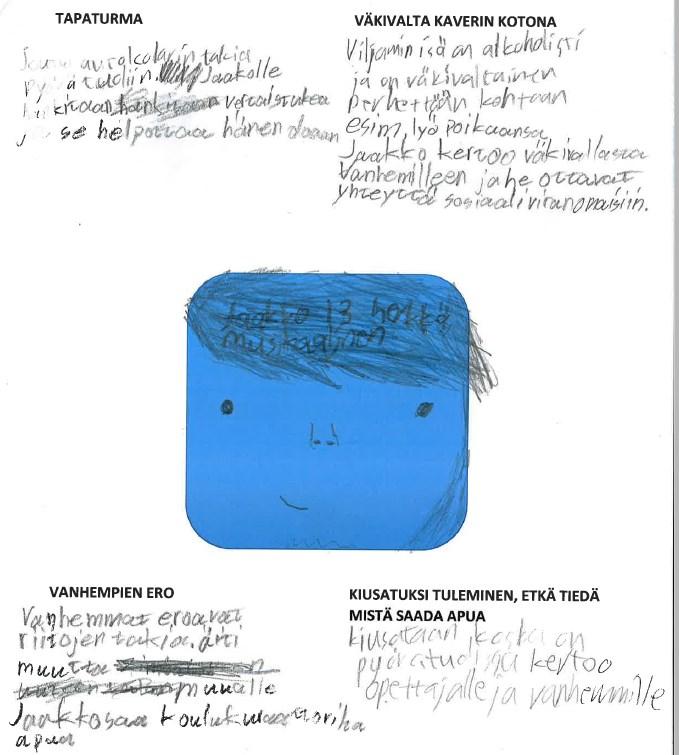 TAPATURMA
Joutu autokolarin takia
pyörätuoliin. Jaakolle
hankitaan vertaistukea
ja se helpottaa hänen oloaan
VÄKIVALTA KAVERIN KOTONA
Viljamin isä on alkoholisti
ja on väkivaltainen
perhettään kohtaan
esim, lyö poikaansa
Jaakko kertoo väkivallasta
Vanhemilleen ja he ottavat
yhteyttä sosiaaliviranomaisiin.
Jaakko 13
VANHEMPIEN ERO
Vanhemmat eroavat
riitojen takia. äiti
muuttaa
muualle
Jaakko saa
apua
KIUSATUKSI TULEMINEN, ETKÄ TIEDÄ
MISTÄ SAADA APUA
kiusataan koska on
pyörätuolissa kertoo
opettajalle ja vanhemmille